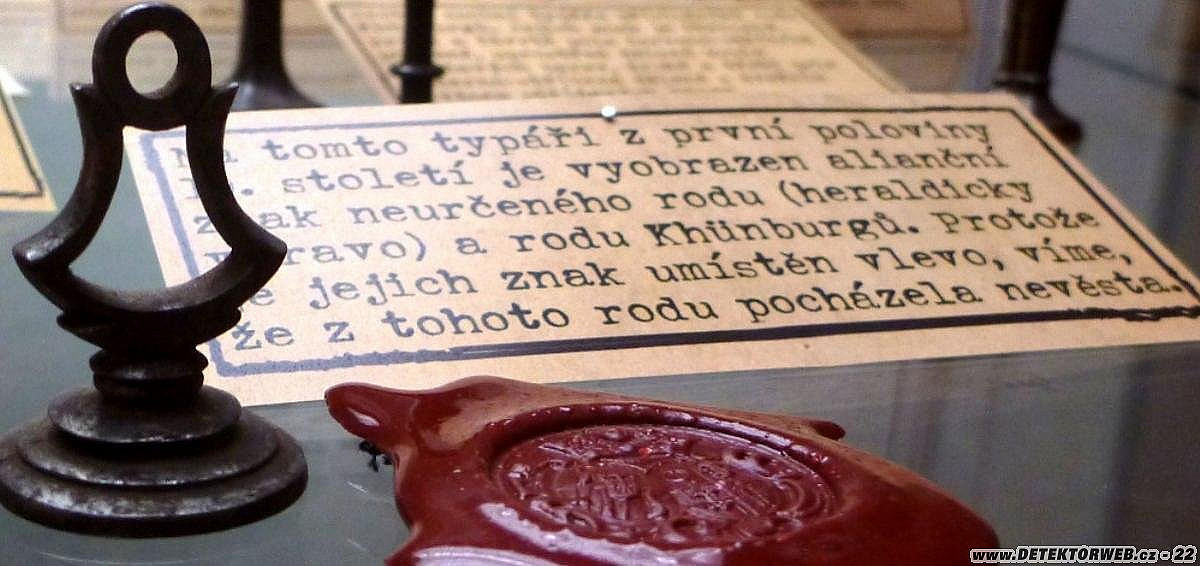 tomto typáři z první poloviny
století je vyobrazen alianční
znak neurčeného rodu (heraldicky
vpravo) a rodu Khünburgů. Protože
je jejich znak umístěn vlevo, víme,
že z tohoto rodu pocházela nevěsta.
www.DETEKTORWEB.cz - 22